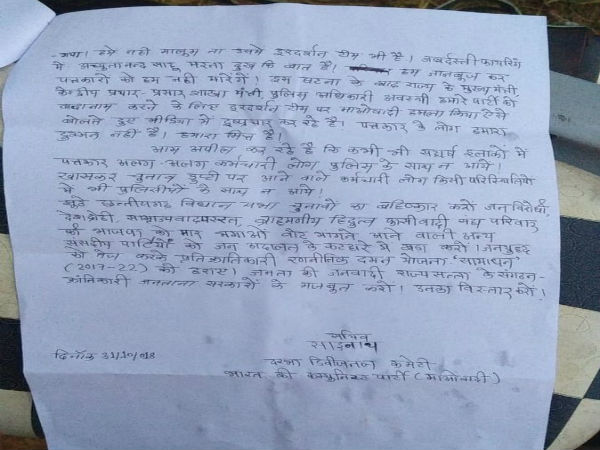 गया। हमे नही मालूम ना उनमे दुरदर्शन टीम भी है। जबर्दस्ती फायरिंग
मे अच्युतानन्द साहू मरना दुख कि बात है। हम जानबुज कर
पत्रकारों को हम नही मारेंगे। इस घटना के बाद राज्य के मुख्य मंत्री
केन्द्रीय प्रचार-प्रसार शाखा मंत्री पुलिस अधिकारी अवस्थी हमारे पार्टी को
बदानाम करने के लिए दुरदर्शन टीम पर माओवादी हमला किया ऐसे
बोलते हुए मीडिया मे दुष्प्रचार कर रहे है। पत्रकार के लोग हमारा
दुश्मन नहीं है। हमारा मित्र है।
आम अपील कर रहे है कि कभी भी संघर्ष इलाकों मे
पत्रकार अलग-अलग कर्मचारी लोग पुलिस के साथ न आये।
खासकर चुनाव ड्युटी पर आने वाले कर्मचारी लोग किसी परिस्थितियों
मे भी पुलिसोंयों के साथ न आये।
झूठे छत्तीसगढ़ विधान सभा चुनावों का बहिष्कार करो जन विरोधी,
देशद्रोही, साम्राज्यवादपरस्त, ब्राहमणीय हिन्दुत्व फासीवादी संघ परिवार
की भाजपा को मार भगाओ वोट मांगने आने वाली अन्य
संसदीय पार्टियों को जन अदालत के कटघरे मे खड़ा करो। जनयुद्ध
को तेज करके प्रतिक्रांतिकारी रणनीतिक दमन योजना 'समाधान'
(2017-22) को हराए। जनता की जनवादी राज्यसत्ता के संगठन-
क्रांतिकारी जनताना सरकारों के मजबुत करो। उनका विस्तार करो।
सचिव
साइनाथ
दिनांक 31/10/018
दरभा डिवीजनल कमेटी
भारत की कम्युनिस्ट पार्टी (माओवादी)